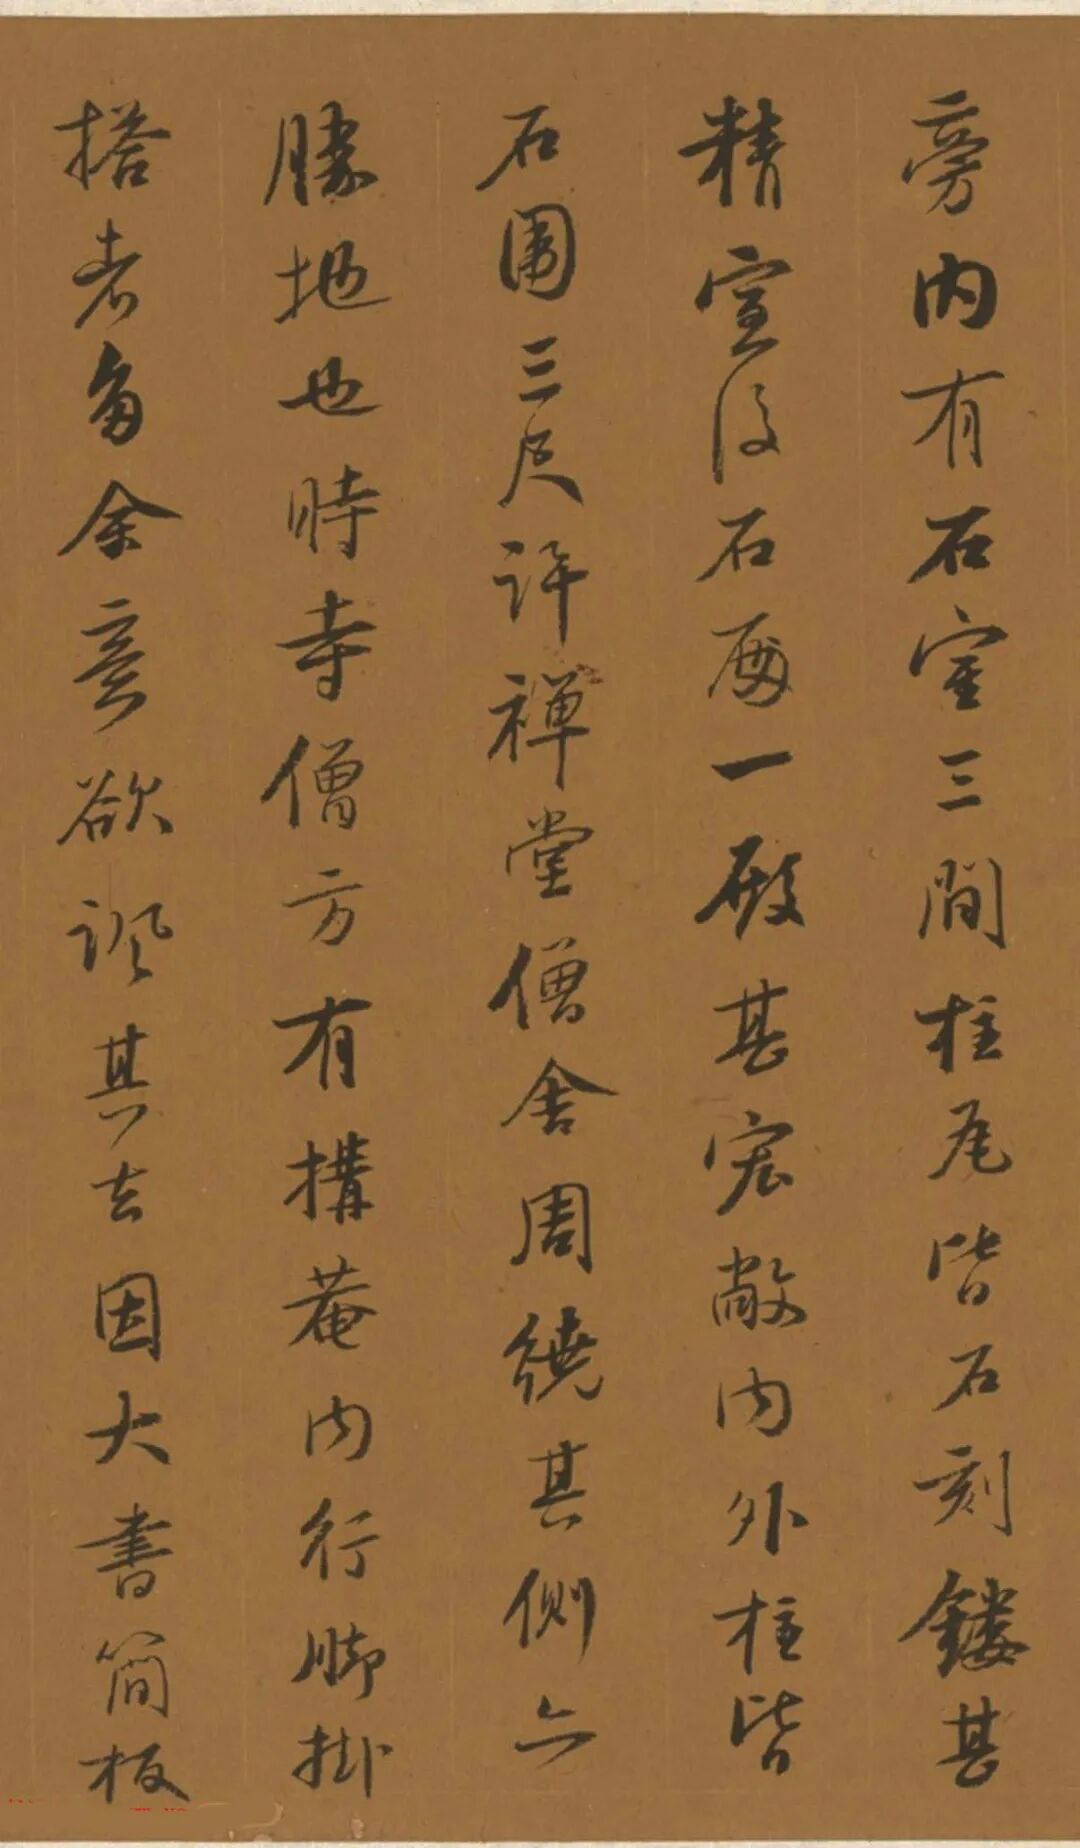 旁内有石室三間柱瓦皆石刻鏤甚
精室後石酉一殿甚宏敞内外柱皆
石圍三尺許禪堂僧舍周繞其側亦
勝地也時寺僧方有構菴内行脚掛
搭者多余意欲諷其去因大書簡板